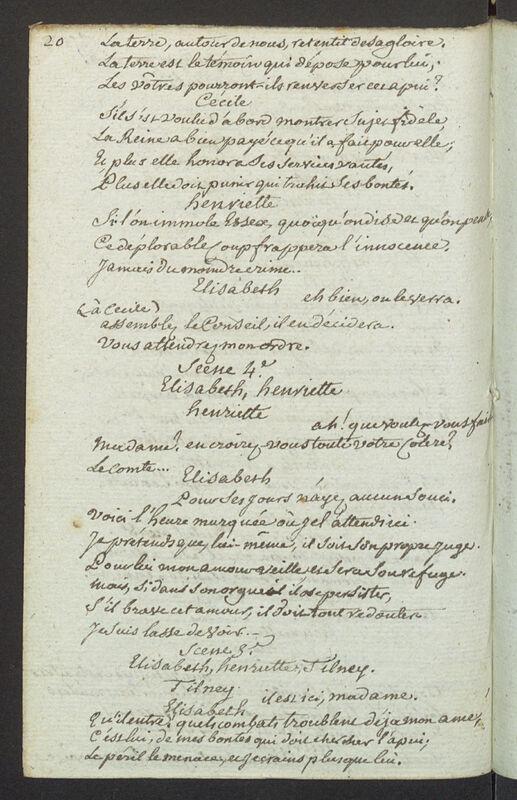 20
La terre, autour de nous, retentit de sa gloire.
La terre est le témoin qui dépose pour lui;
Les vôtres pourront-ils renverser cet apui?
Cécile
S'il s'est voulu d'abord montrer sujet fidèle
La Reine a bien payé ce qu'il a fait pour elle;
Et plus elle honora ses services vantés,
Plus elle doit punir qui trahit ses bontés.
henriette
Si l'on immole Essex, quoiqu'on dise et qu'on pense,
Ce déplorable Coup frappera l'innocence,
Jamais du moindre crime...
Elisabeth
eh bien, on le verra.
(à Cecile)
assemblez le Conseil, il en décidera.
Vous attendrez mon ordre.
Scène 4.e
Elisabeth, henriette
henriette
ah! que voulez-vous faire
Madame? en croirez-vous toute votre Colere?
Le Comte...
Elisabeth
Pour ses jours n'ayez aucun souci.
Voici l'heure marquée où je l'attend ici.
Je prétends que, lui-même, il soit son propre juge.
Pour lui mon amour veille et sera son refuge.
mais, si dans son orgueil il ose persister,
S'il brave cet amour, il doit tout redouter.
Je suis lasse de voir...
Scene 5.e
Elisabeth, henriette, Tilney.
Tilney
il est ici, madame.
Elisabeth
Qu'il entre, quels combats troublent déja mon ame,
C'est lui, de mes bontés qui doit chercher l'apui;
Le péril le menace, et je crains plus que lui.